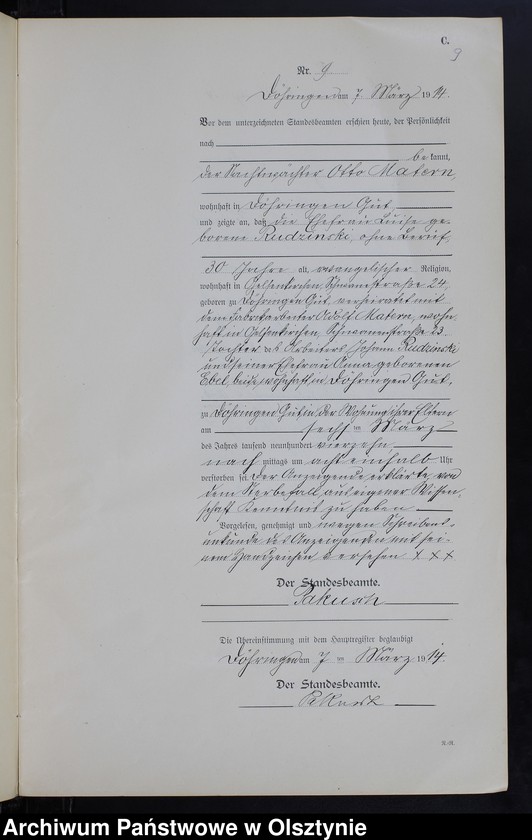 C.
9
Nr. 9
Döhringen am 7 März 1914.
Vor dem unterzeichneten Standesbeamten erschien heute, der Persönlichkeit
nach
be kannt,
der Nachtwächter Otto Matern,
wohnhaft in Döhringen Gut,
und zeigte an, daß die Ehefrau Luise ge-
borene Rudzinski, ohne Beruf,
30 Jahre alt, evangelischer Religion,
wohnhaft in Gelsenkirchen, Schwanenstraße
geboren zu Döhringen Gut, verheiratet mit
dem Fabrikarbeiter Adolf Matern, wohn
haft in Gelsenkirchen, Schwanenstraße 23.
Tochter des Arbeiters Johann Rudzinski
und seiner Ehefrau Anna geborenen
Ebel, beide wohnhaft in Döhringen Gut,
zu Döhringen Gut in der Wohnung ihrer Eltern
am sechs ten März
des Jahres tausend neunhundert vierzehn,
nach mittags um acht einhalb Uhr
verstorben sei. Der Anzeigende erklärte, von
dem Sterbefall aus eigener Wissen
schaft Kenntnis zu haben
Vorgelesen, genehmigt und wegen Schreibens-
unkunde des Anzeigenden mit sei-
nem Handzeichen versehen X X X
Der Standesbeamte.
Pakusch
Die Übereinstimmung mit dem Hauptregister beglaubigt
Döhringen am 7 ten März 1914.
Der Standesbeamte.
Pakusch
Archiwum Państwowe w Olsztynie